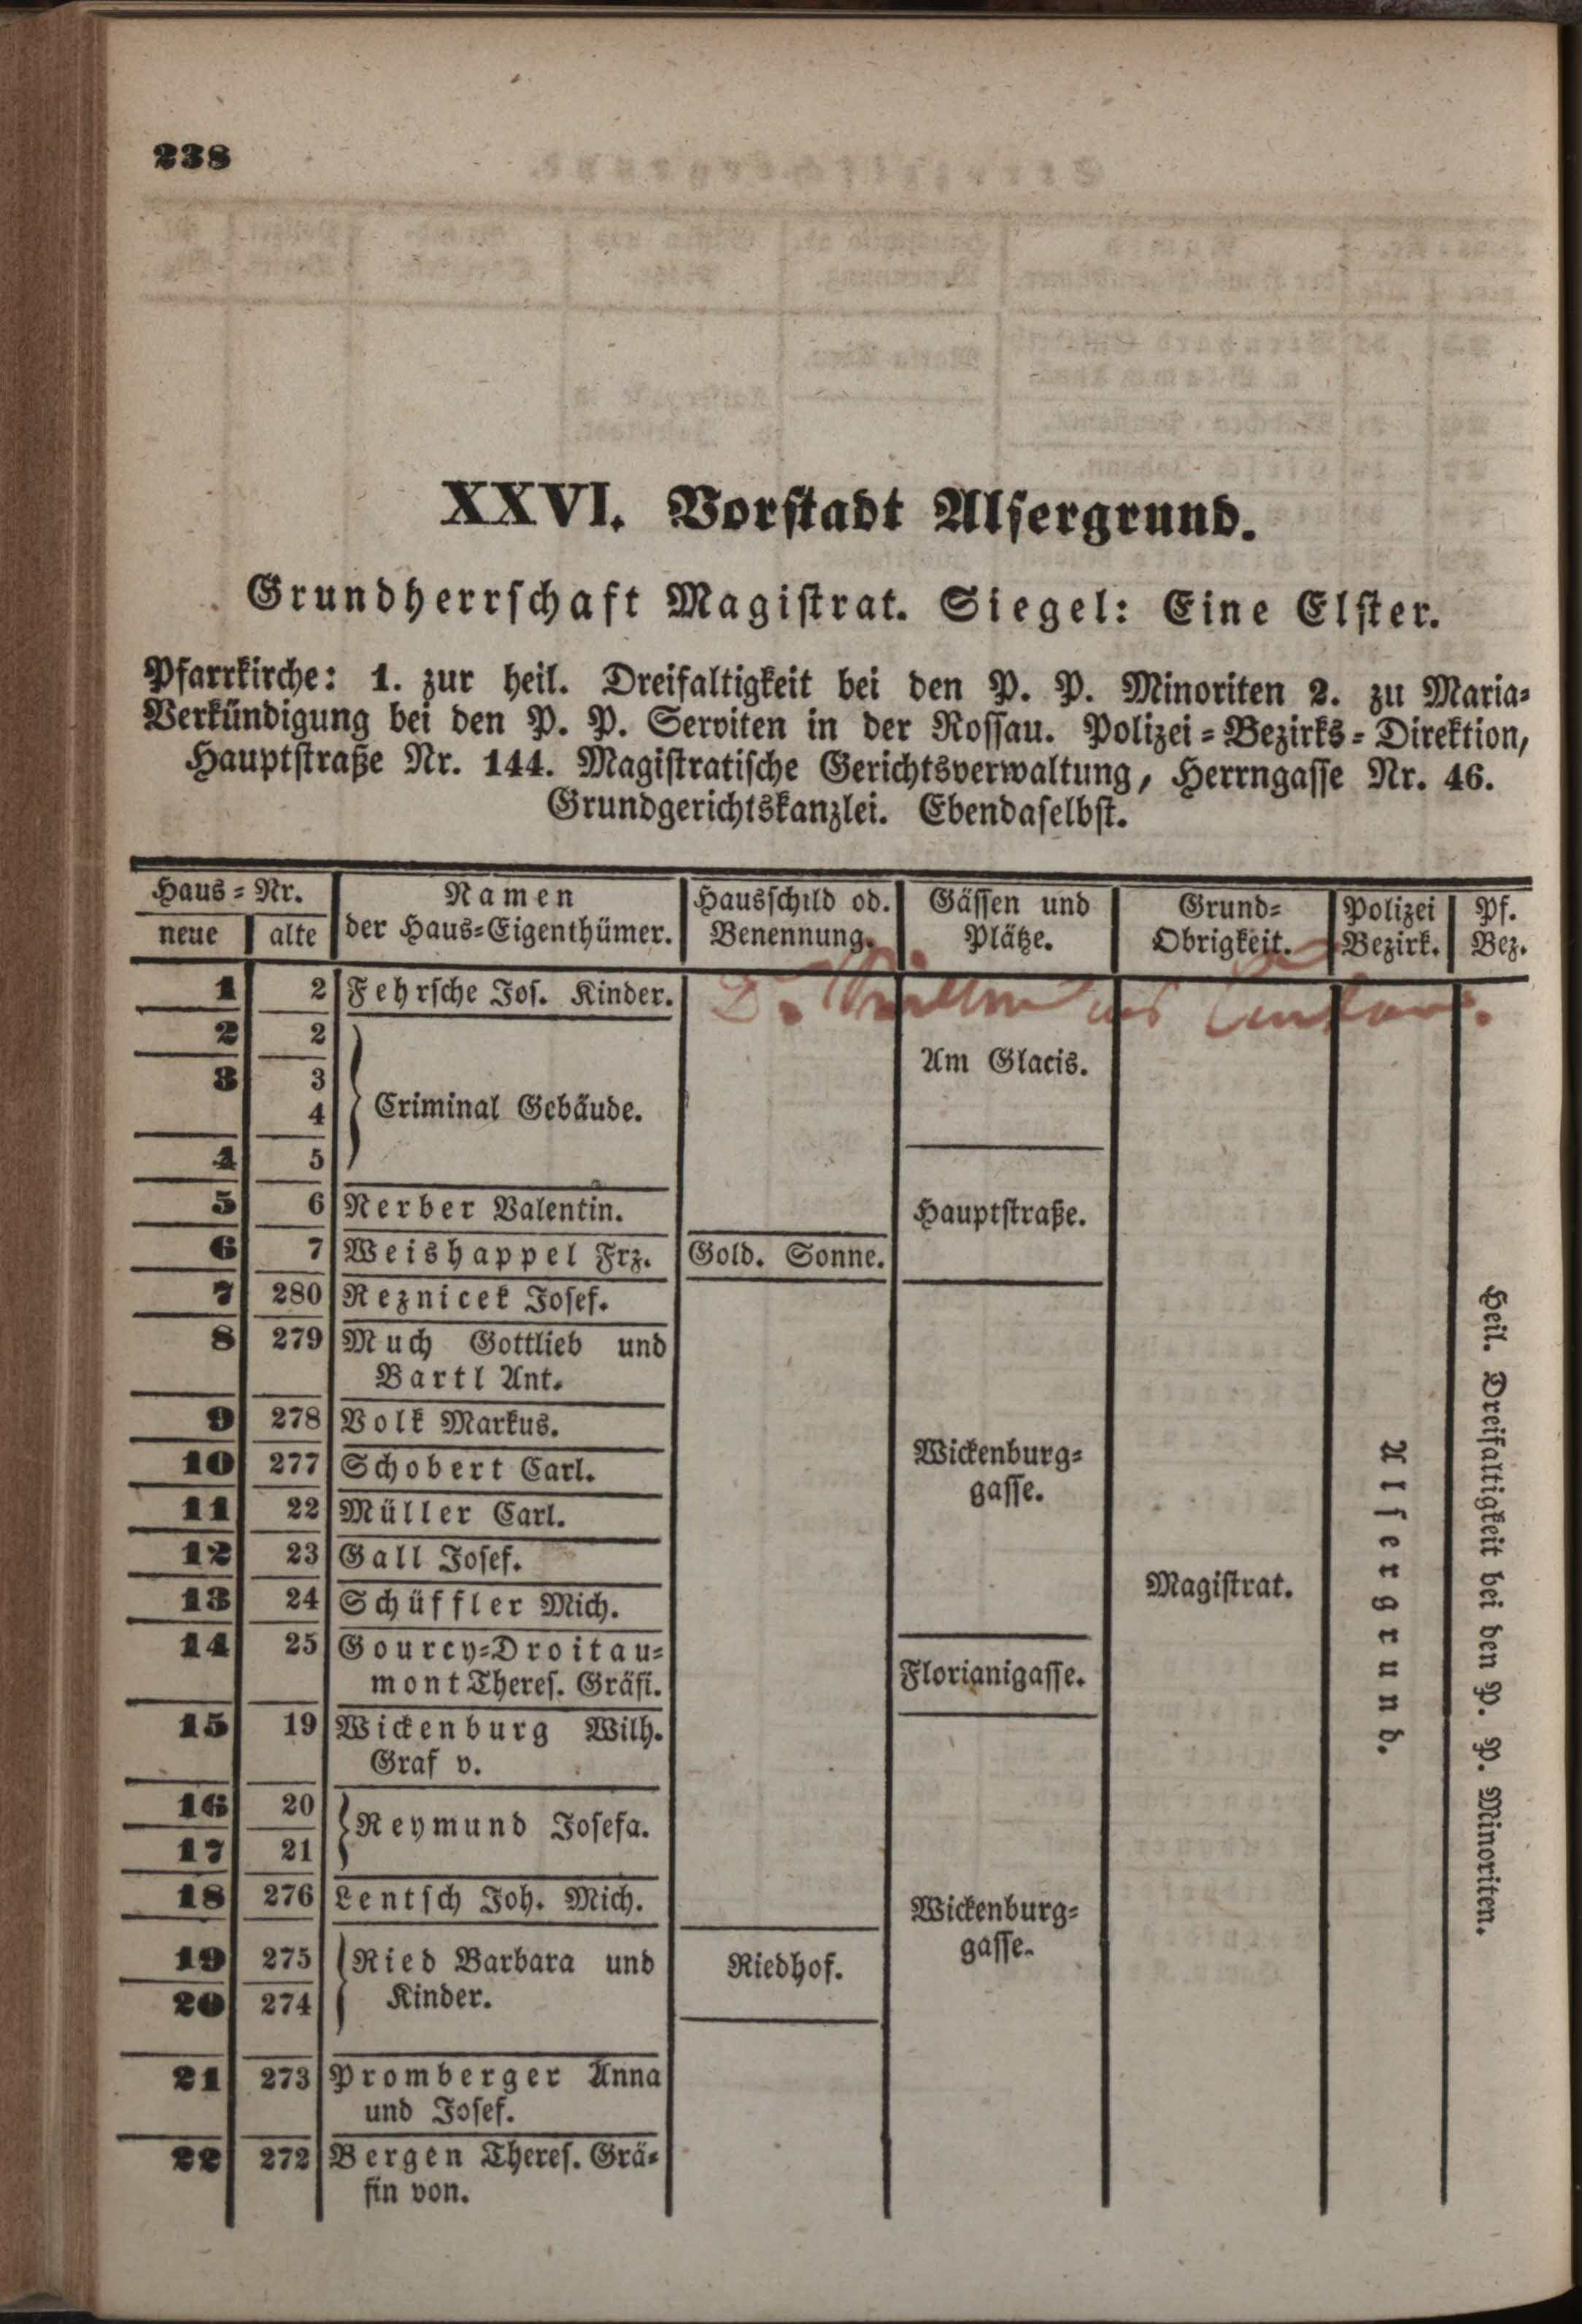 238
XXVI. Vorstadt Alsergrund.
Grundherrschaft Magistrat. Siegel: Eine Elster.
Pfarrkirche: 1. zur heil. Dreifaltigkeit bei den P. P. Minoriten 2. zu Maria-
Verkündigung bei den P. P. Serviten in der Rossau. Polizei-Bezirks-Direktion,
Hauptstraße Nr. 144. Magistratische Gerichtsverwaltung, Herrngasse Nr. 46.
Grundgerichtskanzlei. Ebendaselbst.
Haus-Nr. Namen Hausschild od. Gässen und Grund- Polizei Pf.
neue alte der Haus-Eigenthümer. Benennung. Plätze. Obrigkeit. Bezirk. Bez.
1 2 Fehrsche Jos. Kinder.
2 2
Am Glacis.
3 3
4 Criminal Gebäude.
4 5
5 6 Nerber Valentin. Hauptstraße.
6 7 Weishappel Frz. Gold. Sonne.
7 280 Reznicek Josef.
8 279 Much Gottlieb und
Bartl Ant.
9 278 Volk Markus.
10 277 Schobert Carl. Wickenburg-
gasse.
11 22 Müller Carl.
12 23 Gall Josef.
13 24 Schüffler Mich. Magistrat.
14 25 Gourcy-Droitau-
mont Theres. Gräfi. Florianigasse.
15 19 Wickenburg Wilh.
Graf v.
16 20
Reymund Josefa.
17 21
18 276 Lentsch Joh. Mich. Wickenburg-
gasse.
19 275 Ried Barbara und Riedhof.
20 274 Kinder.
21 273 Promberger Anna
und Josef.
22 272 Bergen Theres. Grä-
fin von.
Alsergrund.
Heil. Dreifaltigkeit bei den P. P. Minoriten.